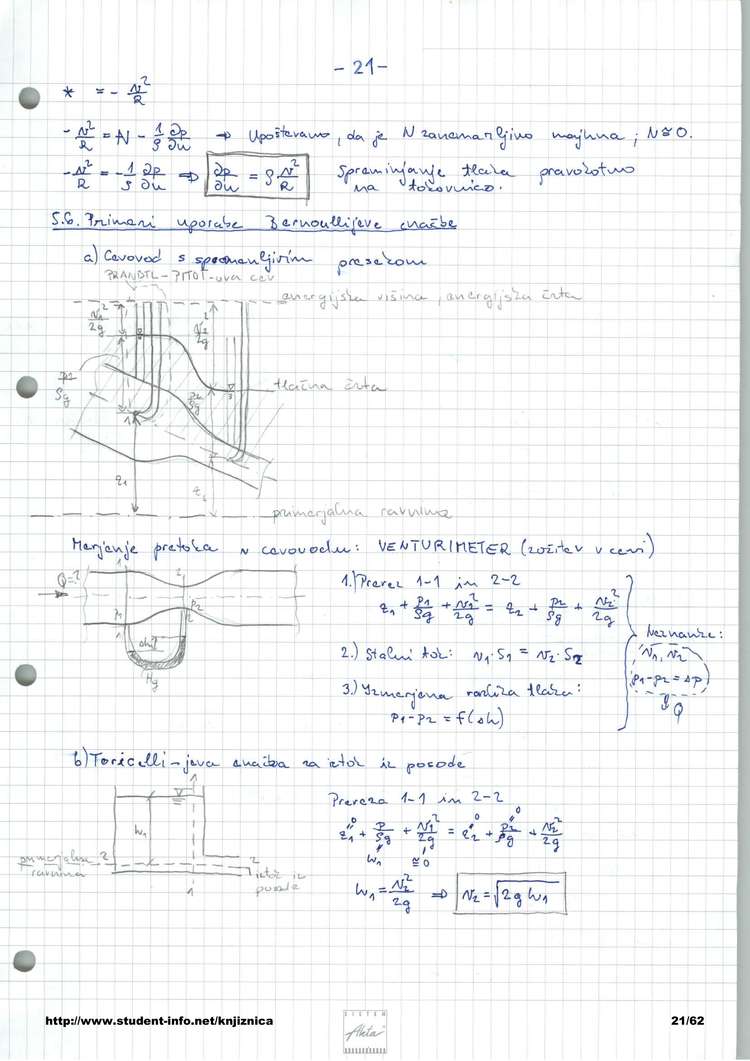 - 21 -
* = - v²/R
- v²/R = N - 1/ρ ∂p/∂n ⇒ Upoštevamo, da je N zanemarljivo majhna; N ≅ 0.
- v²/R = - 1/ρ ∂p/∂n ⇒ ∂p/∂n = ρ · v²/R Spreminjanje tlaka pravokotno
na tokovnico.
5.6. Primeri uporabe Bernoullijeve enačbe
a) Cevovod s spremenljivim presekom
PRANDTL - PITOT-ova cev
energijska višina, energijska črta
v₁²/2g
v₂²/2g
tlačna črta
p₁/ρg
p₂/ρg
z₁
z₂
primerjalna ravnina
Merjenje pretoka v cevovodu: VENTURIMETER (zožitev v cevi)
Q=?
1
2
p₁
p₂
Δh
Hg
1.) Prerez 1-1 in 2-2
z₁ + p₁/ρg + v₁²/2g = z₂ + p₂/ρg + v₂²/2g
2.) Stalni tok: v₁·S₁ = v₂·S₂
3.) Izmerjena razlika tlaka:
p₁-p₂ = f(Δh)
Neznanke:
v₁, v₂
p₁-p₂ = Δp
Q
b) Toricelli-jeva enačba za iztok iz posode
1
h₁
primerjalna
ravnina
2
2
iztok iz
posode
1
Prereza 1-1 in 2-2
z₁ + p/ρg + v₁²/2g = z₂ + p₂/ρg + v₂²/2g
h₁ ≅0
h₁ = v₂²/2g ⇒ v₂ = √2gh₁
http://www.student-info.net/knjiznica
SISTEM
Akta
21/62